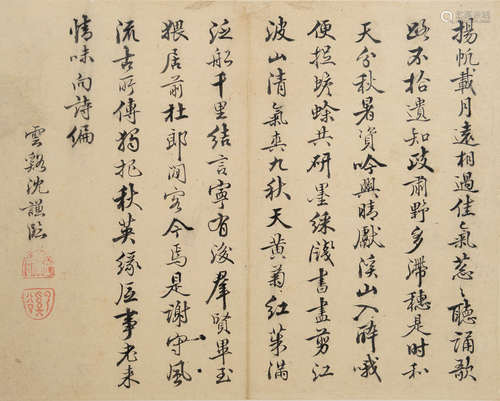 揚帆載月遠相過佳氣蔥〻聽誦歌
路不拾遺知政肅野多滯穗是時和
天分秋暑資吟興晴獻溪山入醉哦
便捉蟾蜍共研墨綵牋書盡剪江
波山清氣爽九秋天黃菊紅茱滿
泛船千里結言寧有後羣賢畢至
猥居前杜郎閒客今焉是謝守風
流古所傳獨把秋英緣底事老來
情味向詩偏
雲谿沈謙臨